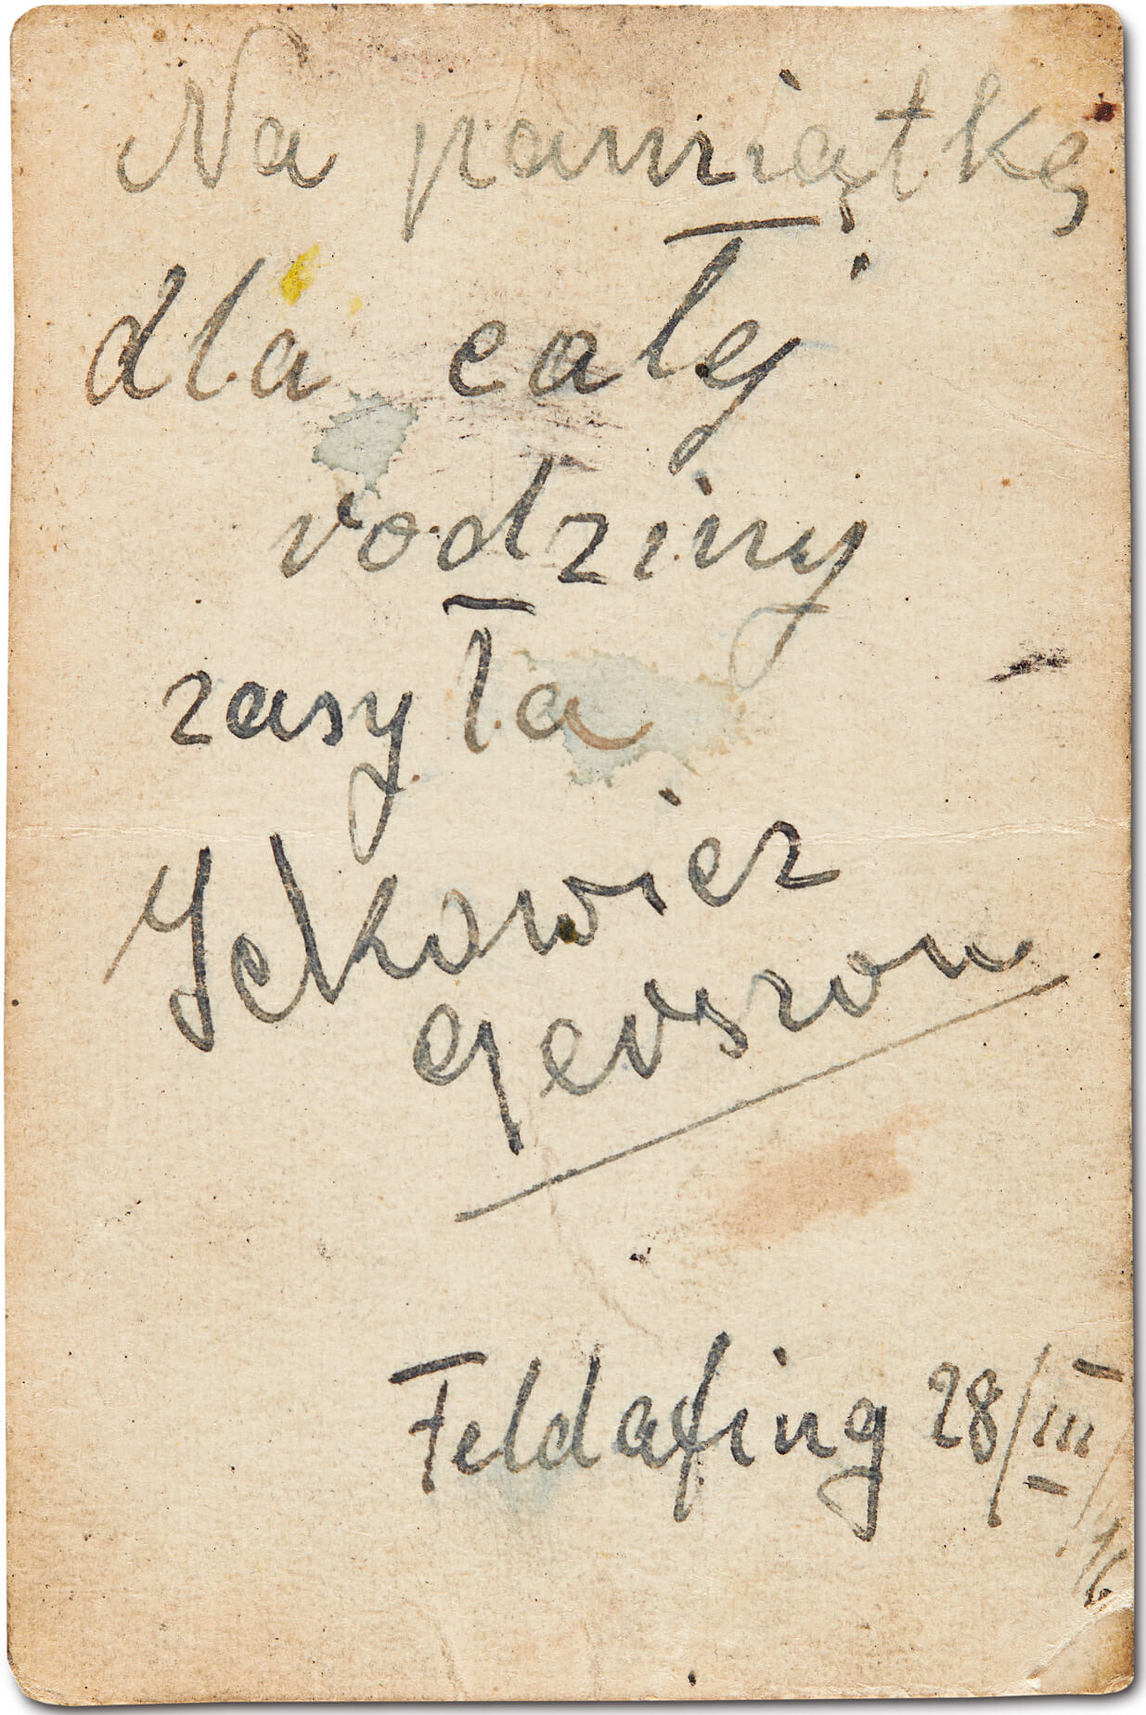 Na pamiątkę
dla całej
rodziny
zasyła
Ickowicz
Gerszon
Feldafing 28/III/46